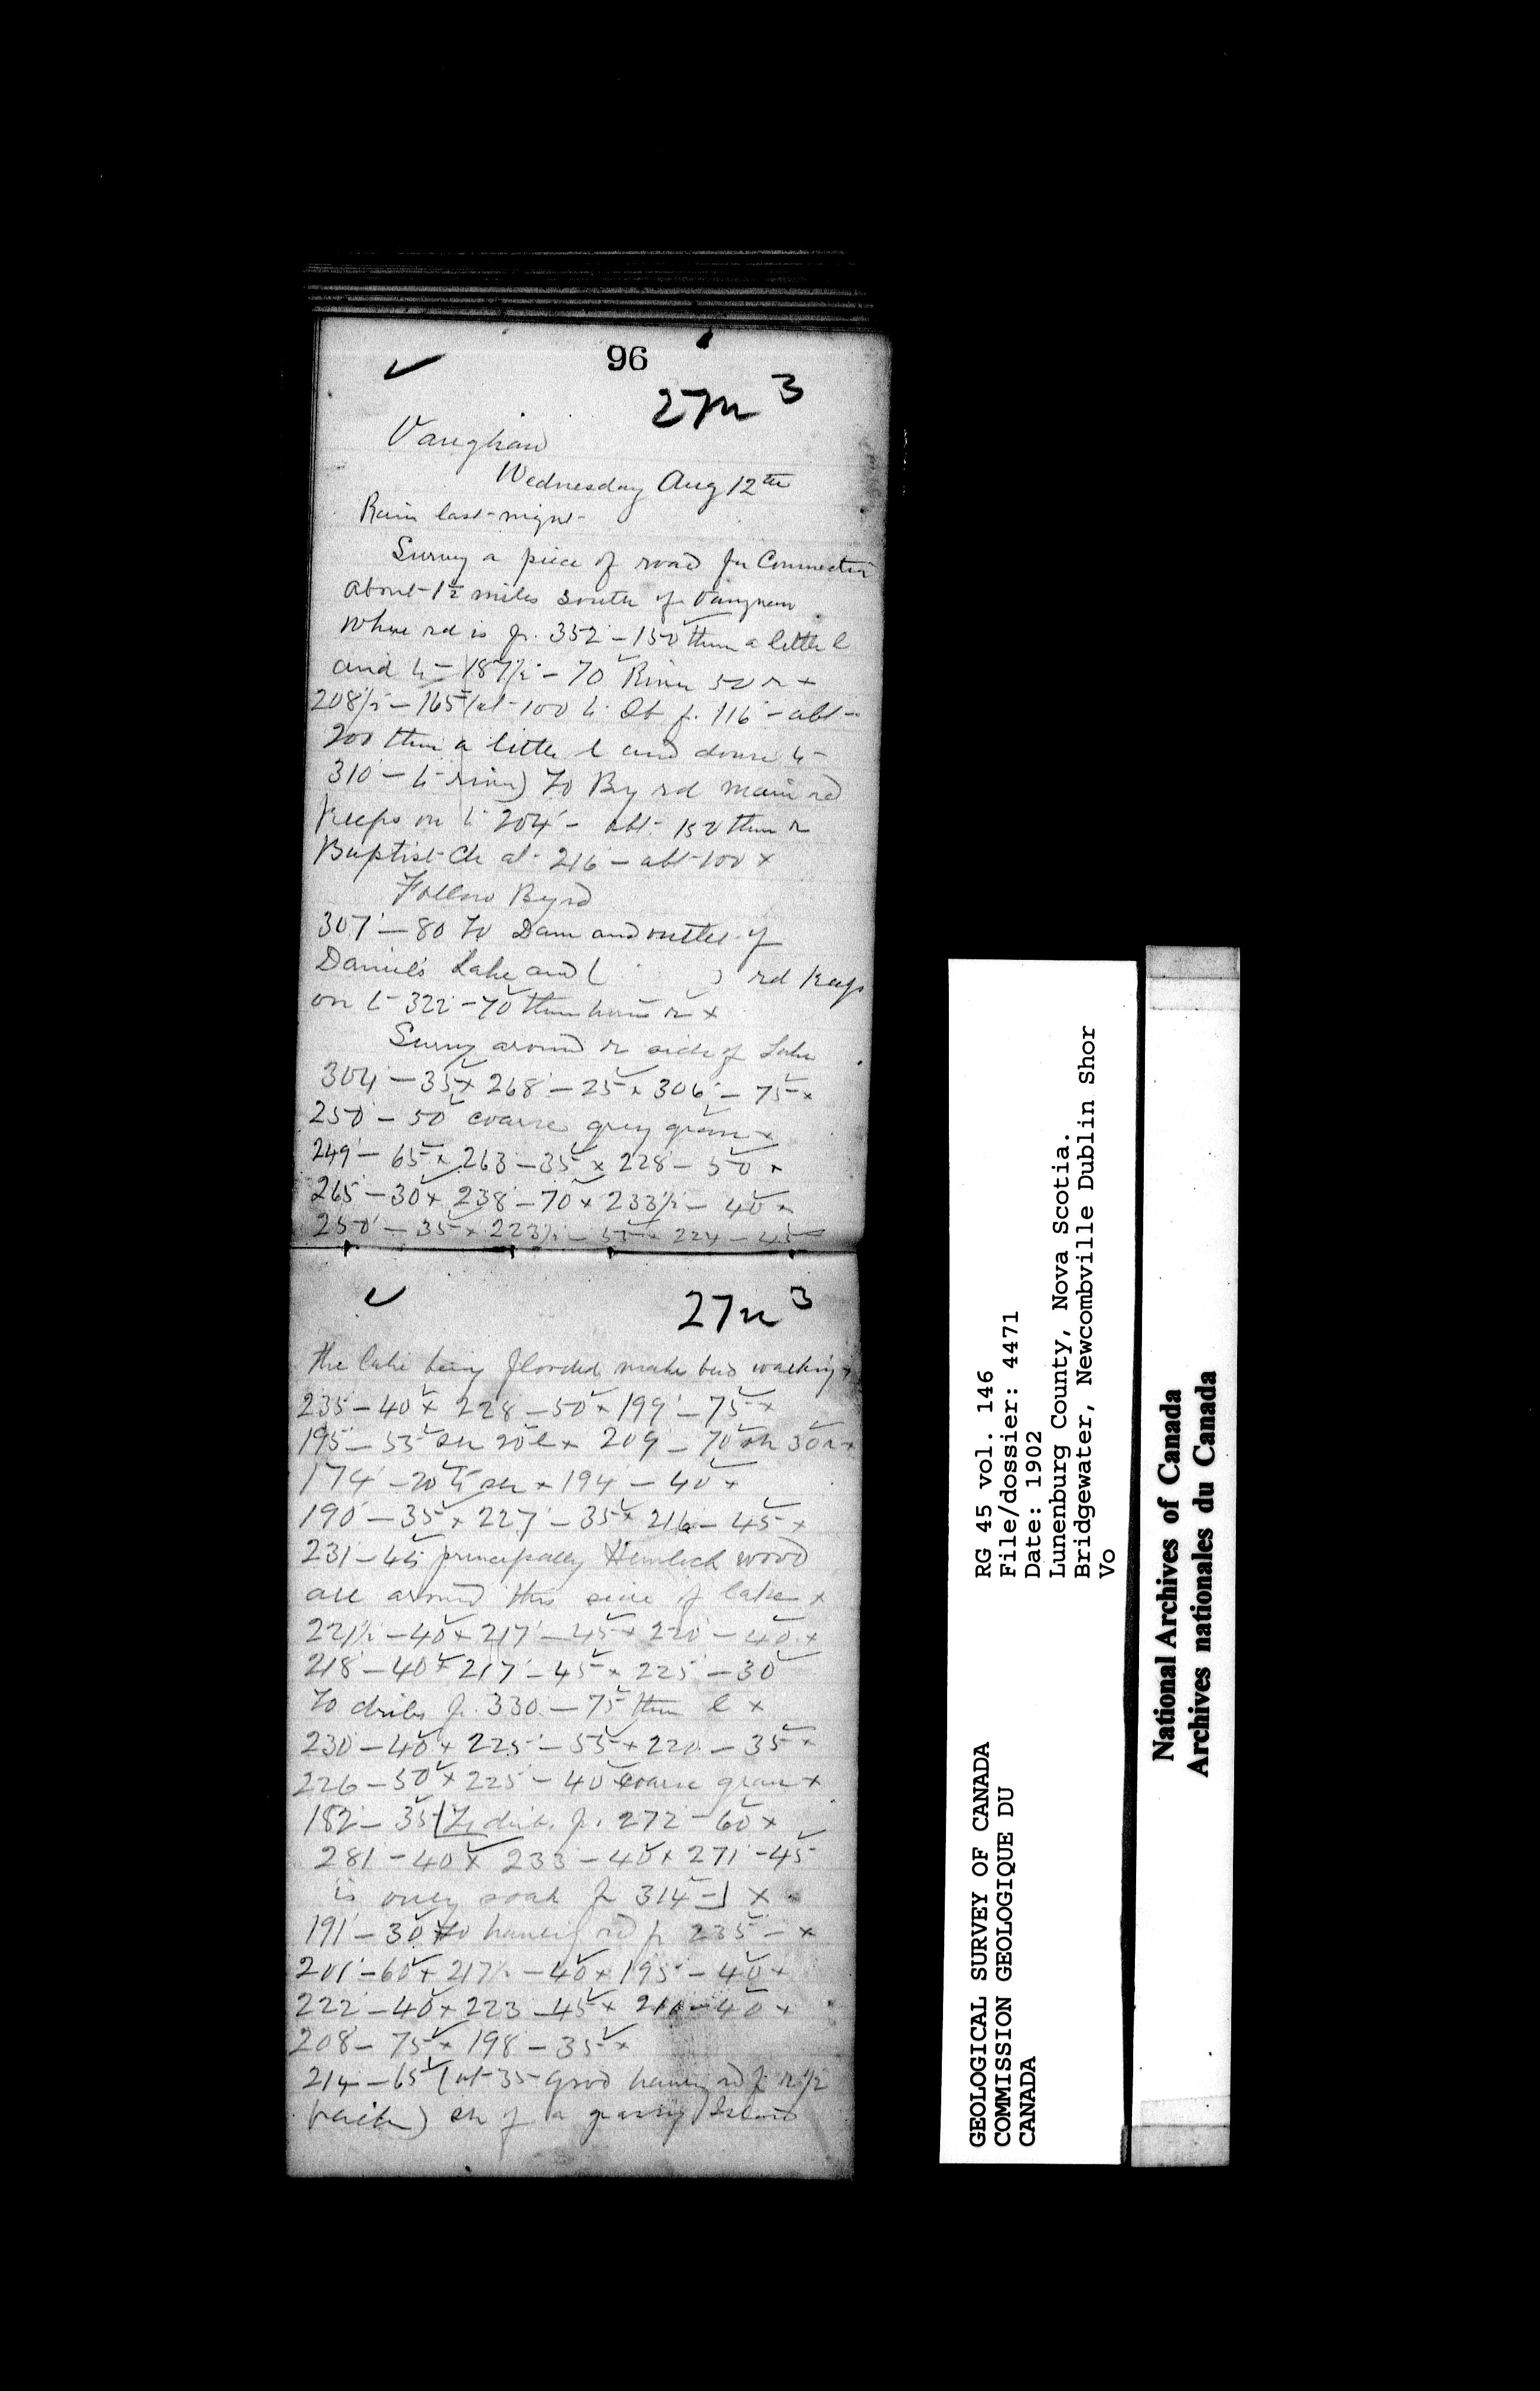 96
27n 3
Vaughan
Wednesday Aug 12th
Rain last night
Survey a piece of road for Connection
about 1½ miles south of Vaughan
where rd is fr. 352 - 150 then a little l
and to 187½ - 70 River 50 r x
208½ - 165 (at 100 to Db fr. 116 - abt
200 then a little l and down to
310 - to river) To By rd main rd
keeps on to 204 - abt 150 then r
Baptist Ch at 216 - abt 100 x
Follow By rd
307 - 80 To Dam and outlet of
Daniels Lake and ( ) rd keeps
on to 322 - 70 then r x
Survey around r side of Lake
304 - 35 x 268 - 25 x 306 - 75 x
250 - 50 coarse grey gran x
249 - 65 x 263 - 35 x 228 - 50 x
265 - 30 x 238 - 70 x 233½ - 40 x
250 - 35 x 223½ - 55 x 224 - 45
27n 3
the lake being flooded make bad walking x
235 - 40 x 228 - 50 x 199 - 75 x
195 - 55 sh 20 l x 209 - 70 sh 30 r x
174 - 20 to sh x 194 - 40 x
190 - 35 x 227 - 35 x 216 - 45 x
231 - 45 principally Hemlock wood
all around this side of lake x
221½ - 40 x 217 - 45 x 220 - 40 x
218 - 40 x 217 - 45 x 225 - 30
To fr. 330 - 75 then l x
230 - 40 x 225 - 55 x 220 - 35 x
226 - 50 x 225 - 40 coarse gran x
182 - 35 [To fr. 272 - 60 x
281 - 40 x 233 - 40 x 271 - 45
is only soak fr 314 - ] x
191 - 30 To hauling rd fr 235 - x
201 - 60 x 217½ - 40 x 195 - 40 x
222 - 40 x 223 - 45 x 210 - 40 x
208 - 75 x 198 - 35 x
214 - 65 (at 35 good hauling rd fr r ½
back) sh of a grassy Island
GEOLOGICAL SURVEY OF CANADA
COMMISSION GEOLOGIQUE DU
CANADA
RG 45 vol. 146
File/dossier: 4471
Date: 1902
Lunenburg County, Nova Scotia.
Bridgewater, Newcombville Dublin Shor
Vo
National Archives of Canada
Archives nationales du Canada